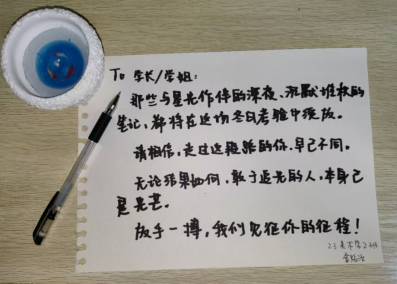 To 学长/学姐：
那些与星光作伴的深夜、沉默堆积的
笔记，都将在这场冬日考验中绽放。
请相信，走过这段路的你，早已不同。
无论结果如何，敢于追光的人，本身已
是光芒。
放手一搏，我们见征你的征程！
23美术学2班